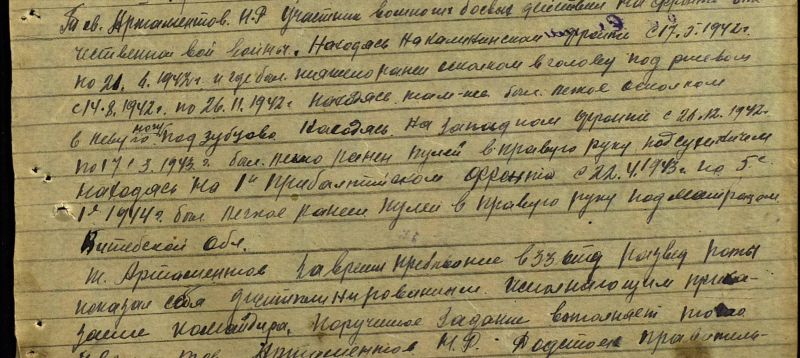 Тов. Артаментов. И.Р. Участник военных боевых действии на фронте оте
чественной вой войны. Находясь на калининском фронте с 17.5.1942г.
по 21. 6. 1942г. и где был тяжело ранен осколком в голову под ржевом
с 14.8.1942г. по 26.11.1942г. находясь там-же был легко осколком
в левую ногу под зубцова Находясь на западном фронте с 26.12.1942г.
по 17 1 3.1943.г. был легко ранен пулей в правую руку под
находясь на 1м прибалтийском фронте с 22.4.1943г. по 5
1944г. был легкое ранен пулей в правую руку под
Витебской обл.
т. Артаментов за время пребывание в 33 развед роты
показал себя дисциплинированным. исполняющим прика-
зание командира, порученое задание выполняет
тов. Артаментов И.Р. достоен правитель-